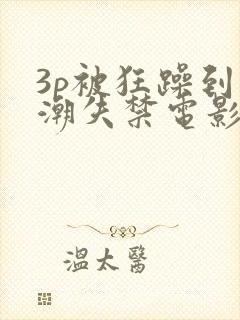 3p被狂躁到
潮失禁电影
溫太醫